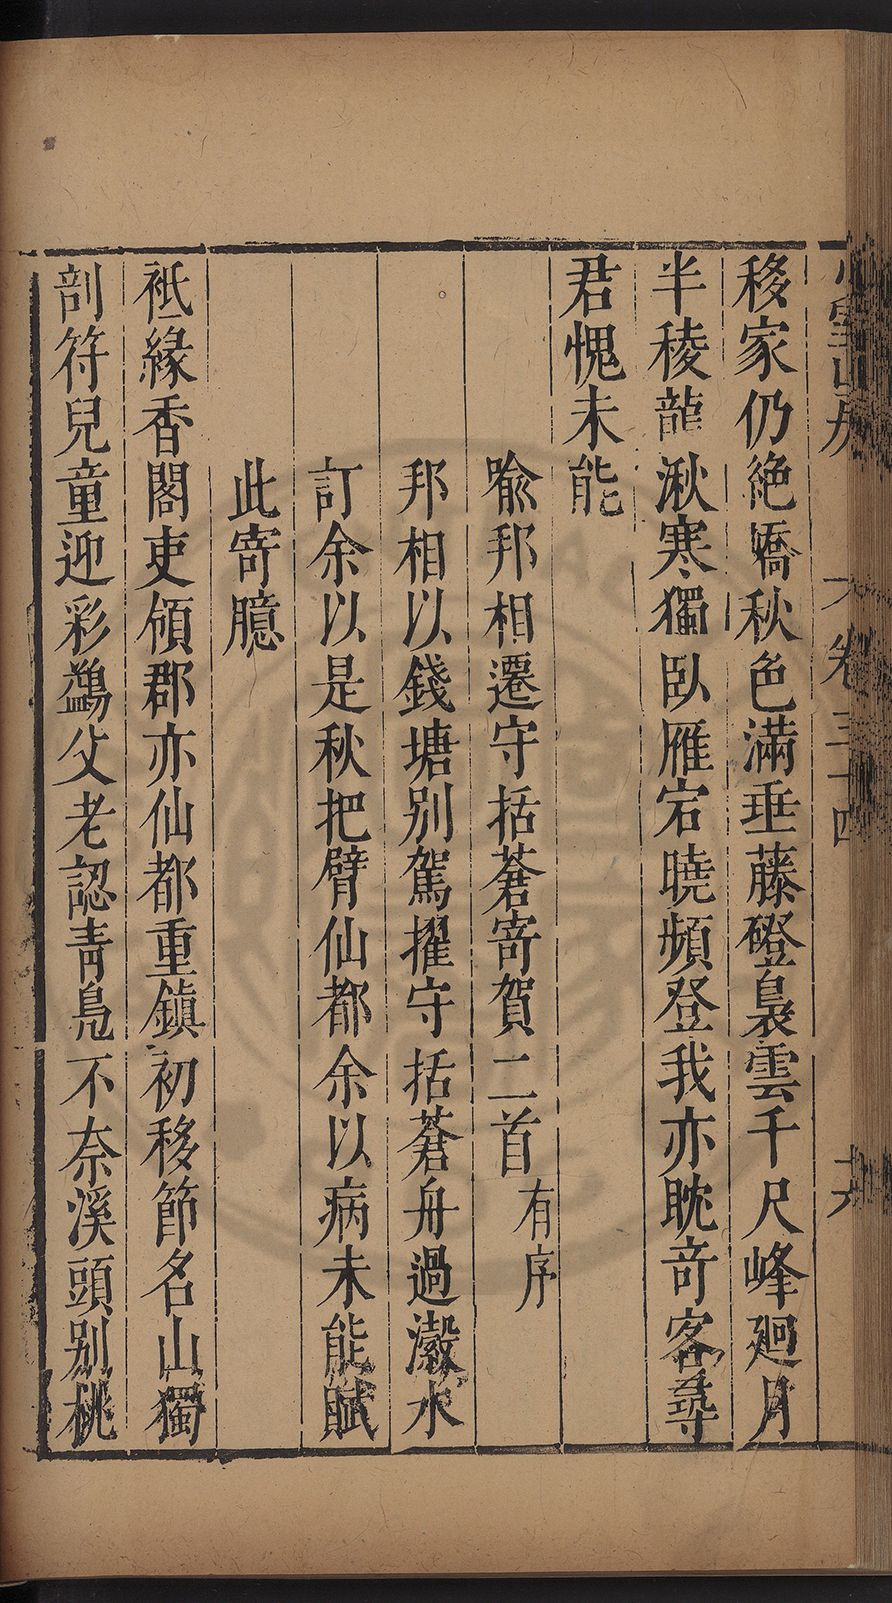 少室山房 卷三十四 十六
移家仍絶嶠秋色滿垂藤磴裊雲千尺峰廻月
半稜龍湫寒獨臥雁宕曉頻登我亦耽竒客尋
君愧未能
喻邦相遷守括蒼寄賀二首有序
邦相以錢塘别駕擢守括蒼舟過瀫水
訂余以是秋把臂仙都余以病未能賦
此寄臆
祗緣香閣吏領郡亦仙都重鎮初移節名山獨
剖符兒童迎彩鷁父老認青鳧不奈溪頭别桃